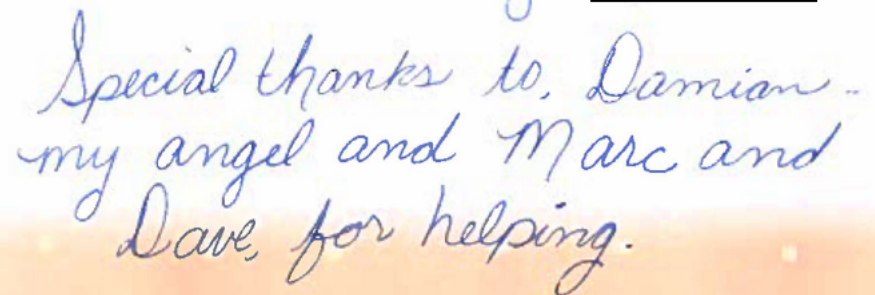 Special thanks to, Damian -
my angel and Marc and
Dave, for helping.